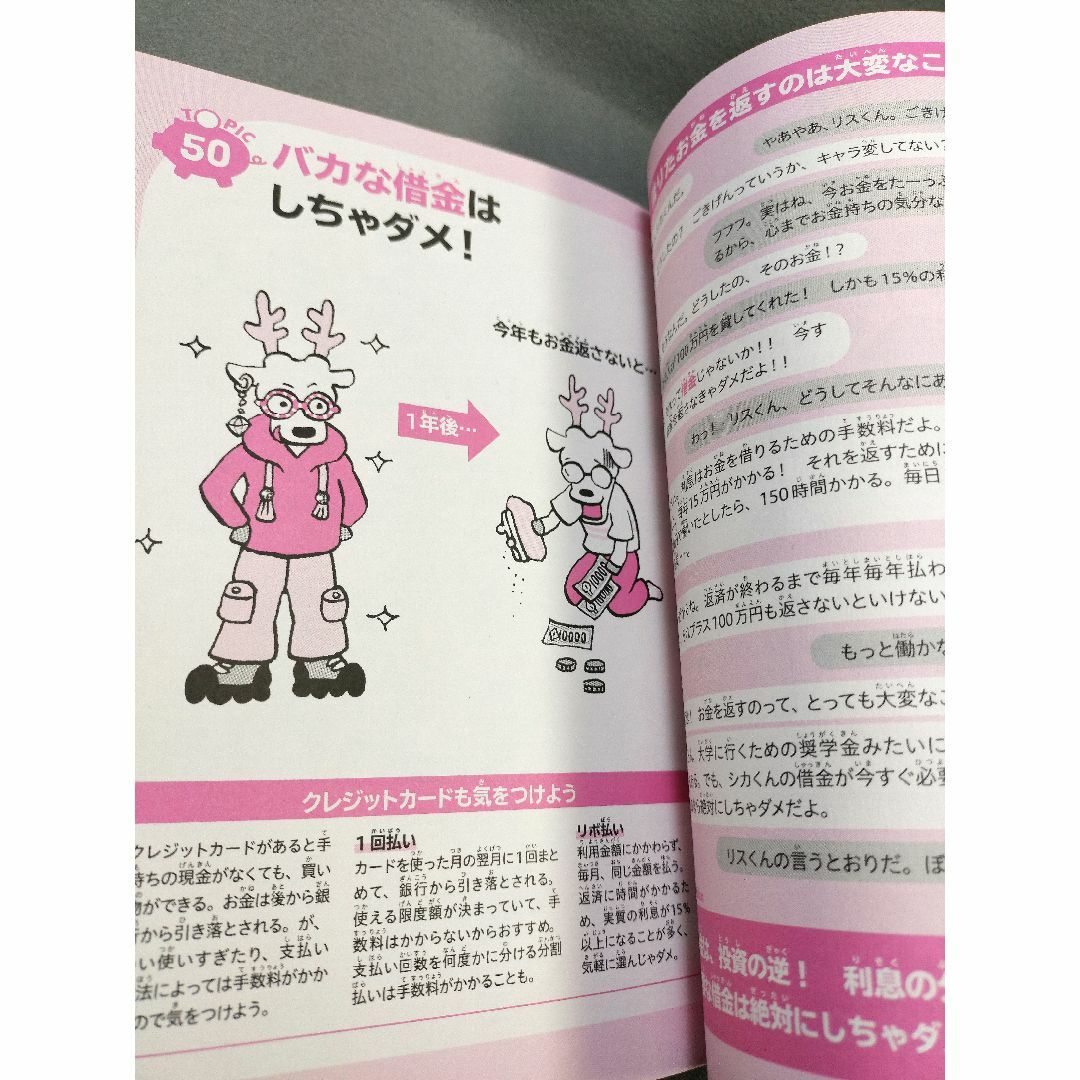 TOPIC
50
バカな借金は
しちゃダメ！
今年もお金返さないと…
1年後…
10000
クレジットカードも気をつけよう
クレジットカードがあると手
持ちの現金がなくても、買い
物ができる。お金は後から銀
行から引き落とされる。が、
い使いすぎたり、支払い
法によっては手数料がかか
ので気をつけよう。
1回払い
カードを使った月の翌月に1回まと
めて、銀行から引き落とされる。
使える限度額が決まっていて、手
数料はかからないからおすすめ。
支払い回数を何度かに分ける分割
払いは手数料がかかることも。
リボ払い
利用金額にかかわらず、
毎月、同じ金額を払う。
返済に時間がかかるた
め、実質の利息が15%
以上になることが多く、
気軽に選んじゃダメ。
りたお金を返すのは大変なこ
やあやあ、リスくん。ごきげ
ごきげんっていうか、キャラ変してない？
フフフ。実はね、今お金をたーっぷ
るから、心までお金持ちの気分な
どうしたの、そのお金！？
100万円を貸してくれた！　しかも15%の利
借金じゃないか！！　今す
なきゃダメだよ！！
わっ！　リスくん、どうしてそんなにあ
息はお金を借りるための手数料だよ。
15万円がかかる！　それを返すために
いたとしたら、150時間かかる。毎日
返済が終わるまで毎年毎年払わ
プラス100万円も返さないといけない
もっと働かな
お金を返すのって、とっても大変なこ
大学に行くための奨学金みたいに
でも、シカくんの借金が今すぐ必要
絶対にしちゃダメだよ。
リスくんの言うとおりだ。ぼ
は、投資の逆！　利息の
借金は絶対にしちゃダ